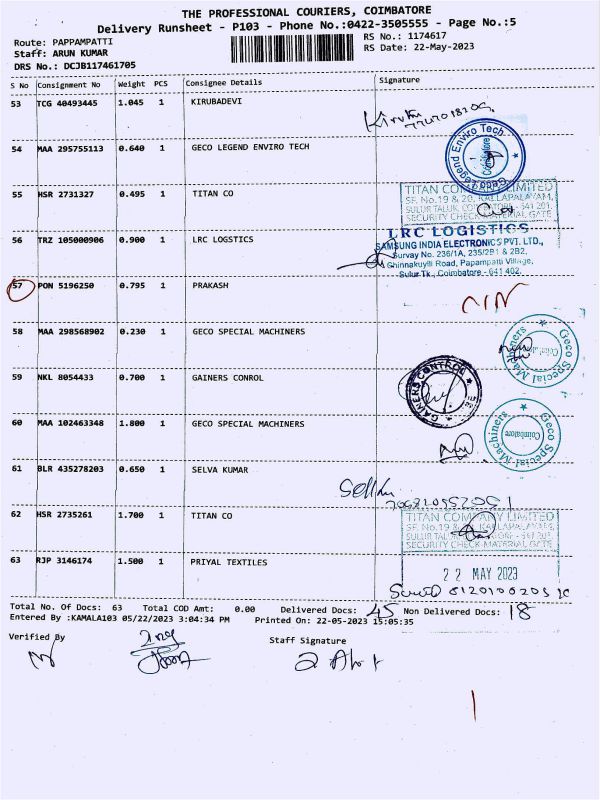 THE PROFESSIONAL COURIERS, COIMBATORE
Delivery Runsheet - P103 - Phone No.:0422-3505555 - Page No.:5
Route: PAPPAMPATTI
RS No.: 1174617
Staff: ARUN KUMAR
RS Date: 22-May-2023
DRS No.: DCJB117461705
S No Consignment No Weight PCS Consignee Details Signature
53 TCG 40493445 1.045 1 KIRUBADEVI
54 MAA 295755113 0.640 1 GECO LEGEND ENVIRO TECH
Geco Legend Enviro Tech
Coimbatore
55 HSR 2731327 0.495 1 TITAN CO
TITAN COMPANY LIMITED
SF. No.19 & 20, KALLAPALAYAM,
SULUR TALUK, COIMBATORE - 641 201.
SECURITY CHECK MATERIAL GATE
56 TRZ 105000906 0.900 1 LRC LOGSTICS
LRC LOGISTICS
SAMSUNG INDIA ELECTRONICS PVT. LTD.,
Survay No. 236/1A, 235/2B1 & 2B2,
Chinnakuyili Road, Papampatti Village,
Sulur Tk., Coimbatore - 641 402.
57 PON 5196250 0.795 1 PRAKASH
58 MAA 298568902 0.230 1 GECO SPECIAL MACHINERS
Geco Special Machiners
Coimbatore
59 NKL 8054433 0.700 1 GAINERS CONROL
GAINERS CONTROL
60 MAA 102463348 1.800 1 GECO SPECIAL MACHINERS
Geco Special Machiners
Coimbatore
61 BLR 435278203 0.650 1 SELVA KUMAR
62 HSR 2735261 1.700 1 TITAN CO
TITAN COMPANY LIMITED
SF. No.19 & 20, KALLAPALAYAM,
SULUR TALUK, COIMBATORE - 641 201.
SECURITY CHECK MATERIAL GATE
63 RJP 3146174 1.500 1 PRIYAL TEXTILES
22 MAY 2023
Total No. Of Docs: 63 Total COD Amt: 0.00 Delivered Docs: 45 Non Delivered Docs: 18
Entered By :KAMALA103 05/22/2023 3:04:34 PM Printed On: 22-05-2023 15:05:35
Verified By
Staff Signature